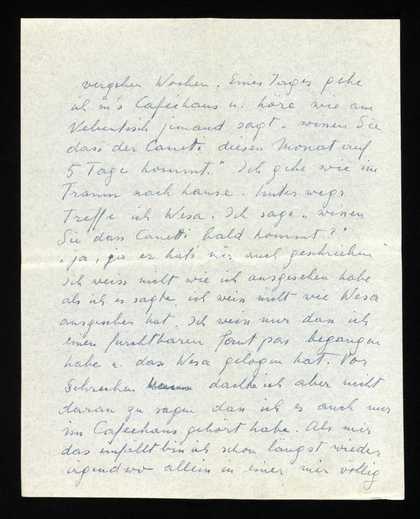 vergehen Wochen. Eines Tages gehe
ich in's Cafeehaus u. höre wie am
Nebentisch jemand sagt „wissen Sie
dass der Canetti diesen Monat auf
5 Tage kommt." Ich gehe wie im
Traum nach hause. Unterwegs
treffe ich Wesa. Ich sage „wissen
Sie dass Canetti bald kommt?"
„ja, ja er hats mir auch geschrieben"
Ich weiss nicht wie ich ausgesehen habe
als ich es sagte, ich weiss nicht wie Wesa
ausgesehen hat. Ich weiss nur dass ich
einen furchtbaren Faut pas begangen
habe u. dass Wesa gelogen hat. Vor
Schrecken dachte ich aber nicht
daran zu sagen dass ich es auch nur
im Cafeehaus gehört habe. Als mir
das einfällt bin ich schon längst wieder
irgendwo allein in einer mir völlig